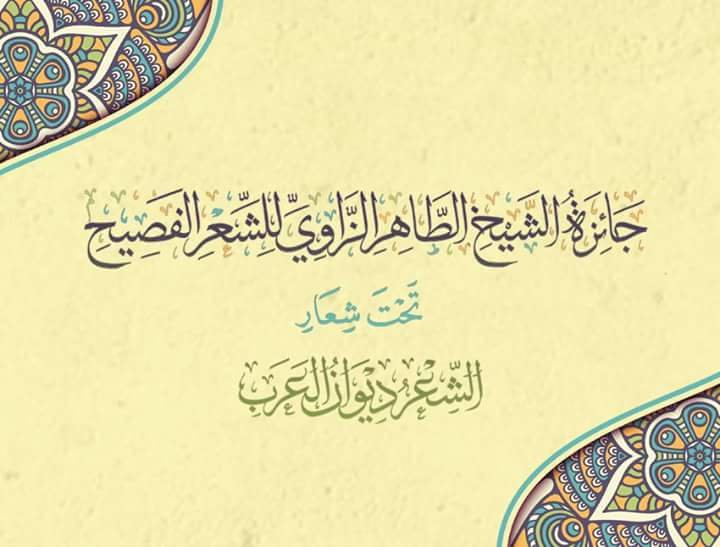 جَائِزَةُ الشَّيْخِ الطَّاهِرِ الزَّاوِيِّ لِلشِّعْرِ الفَصِيحِ
تَحْتَ شِعَارِ
الشِّعْرُ دِيوَانُ العَرَبِ